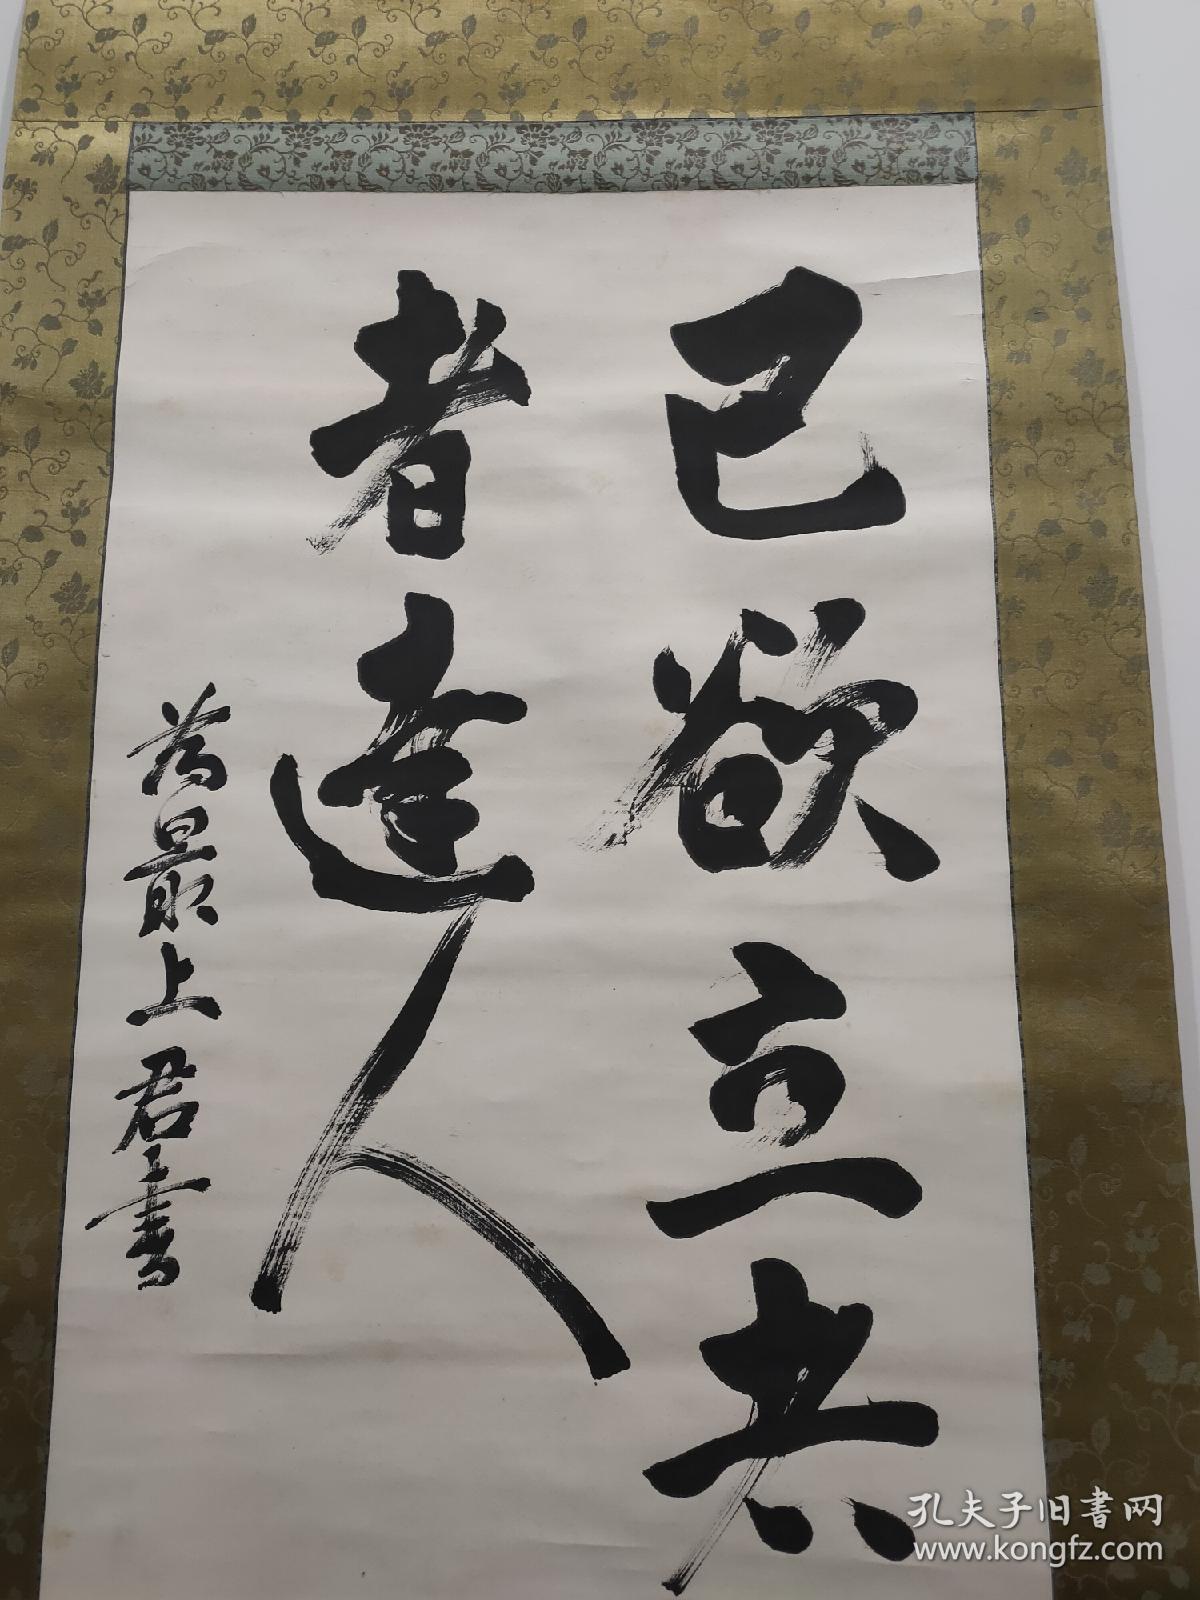 己欲立共
者達人
為最上君書
孔夫子旧書网
www.kongfz.com